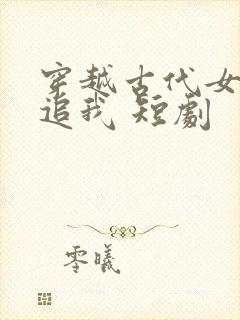 穿越古代女
追我 短劇
零曦